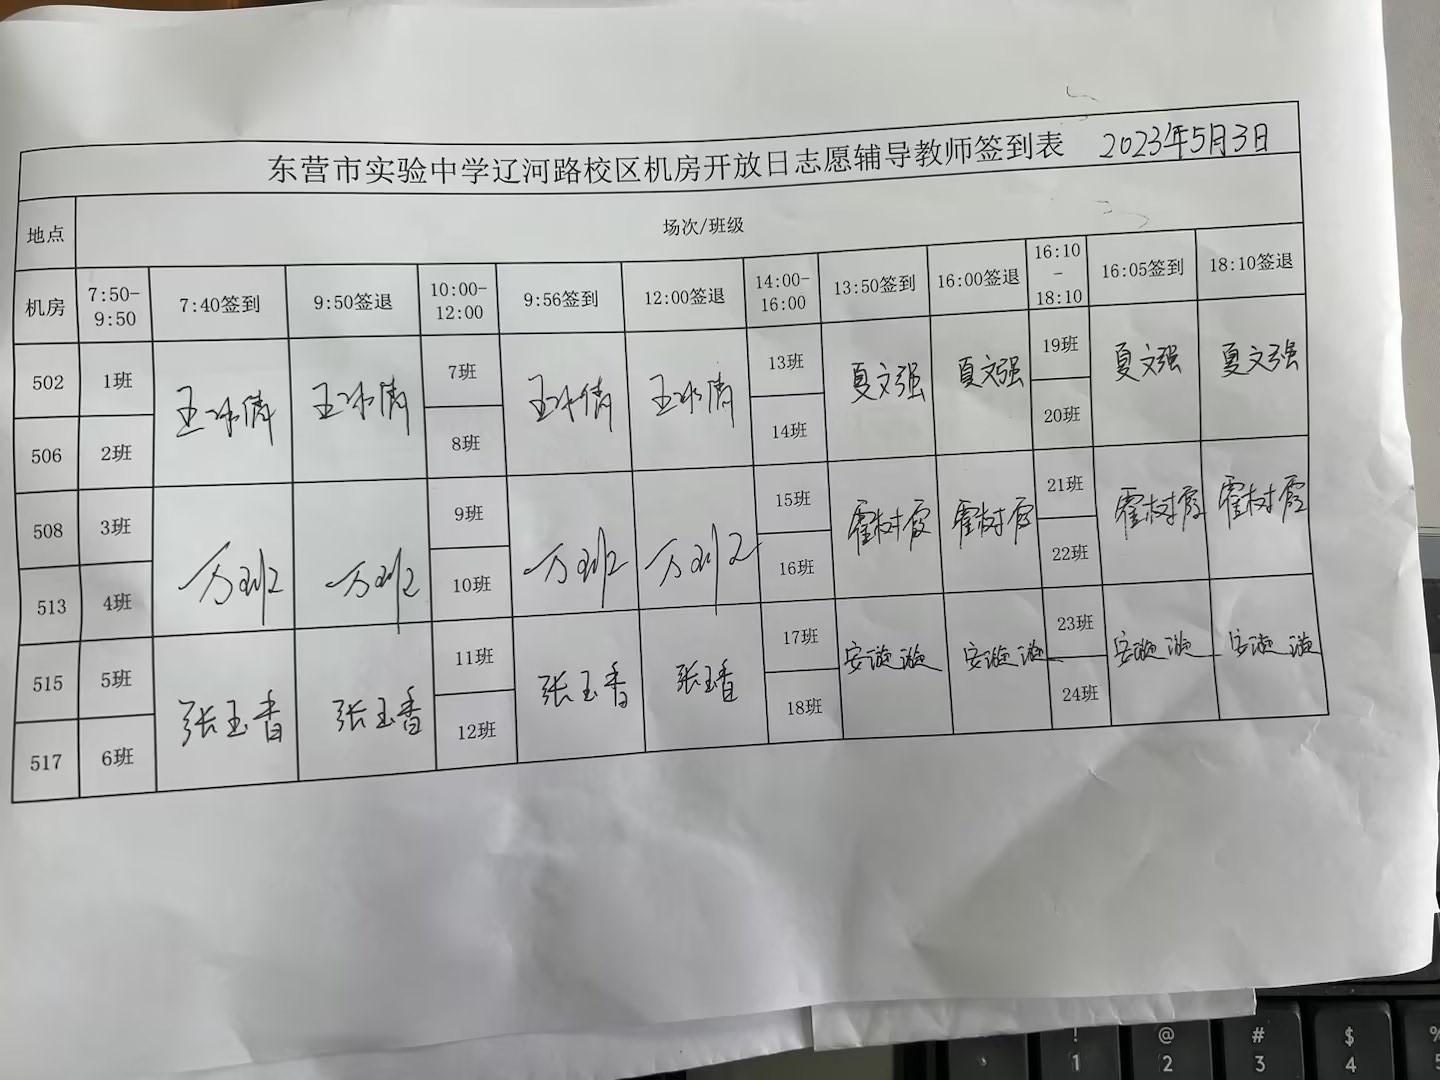 东营市实验中学辽河路校区机房开放日志愿辅导教师签到表 2023年5月3日
地点 场次/班级
机房 7:50-9:50 7:40签到 9:50签退 10:00-12:00 9:56签到 12:00签退 14:00-16:00 13:50签到 16:00签退 16:10-18:10 16:05签到 18:10签退
502 1班 王冰倩 王冰倩 7班 王冰倩 王冰倩 13班 夏文强 夏文强 19班 夏文强 夏文强
506 2班 8班 14班 20班
508 3班 9班 15班 霍树霞 霍树霞 21班 霍树霞 霍树霞
513 4班 10班 16班 22班
515 5班 张玉香 张玉香 11班 张玉香 张玉香 17班 安璇璇 安璇璇 23班 安璇璇 安璇璇
517 6班 12班 18班 24班
! @ # $ %
1 2 3 4 5